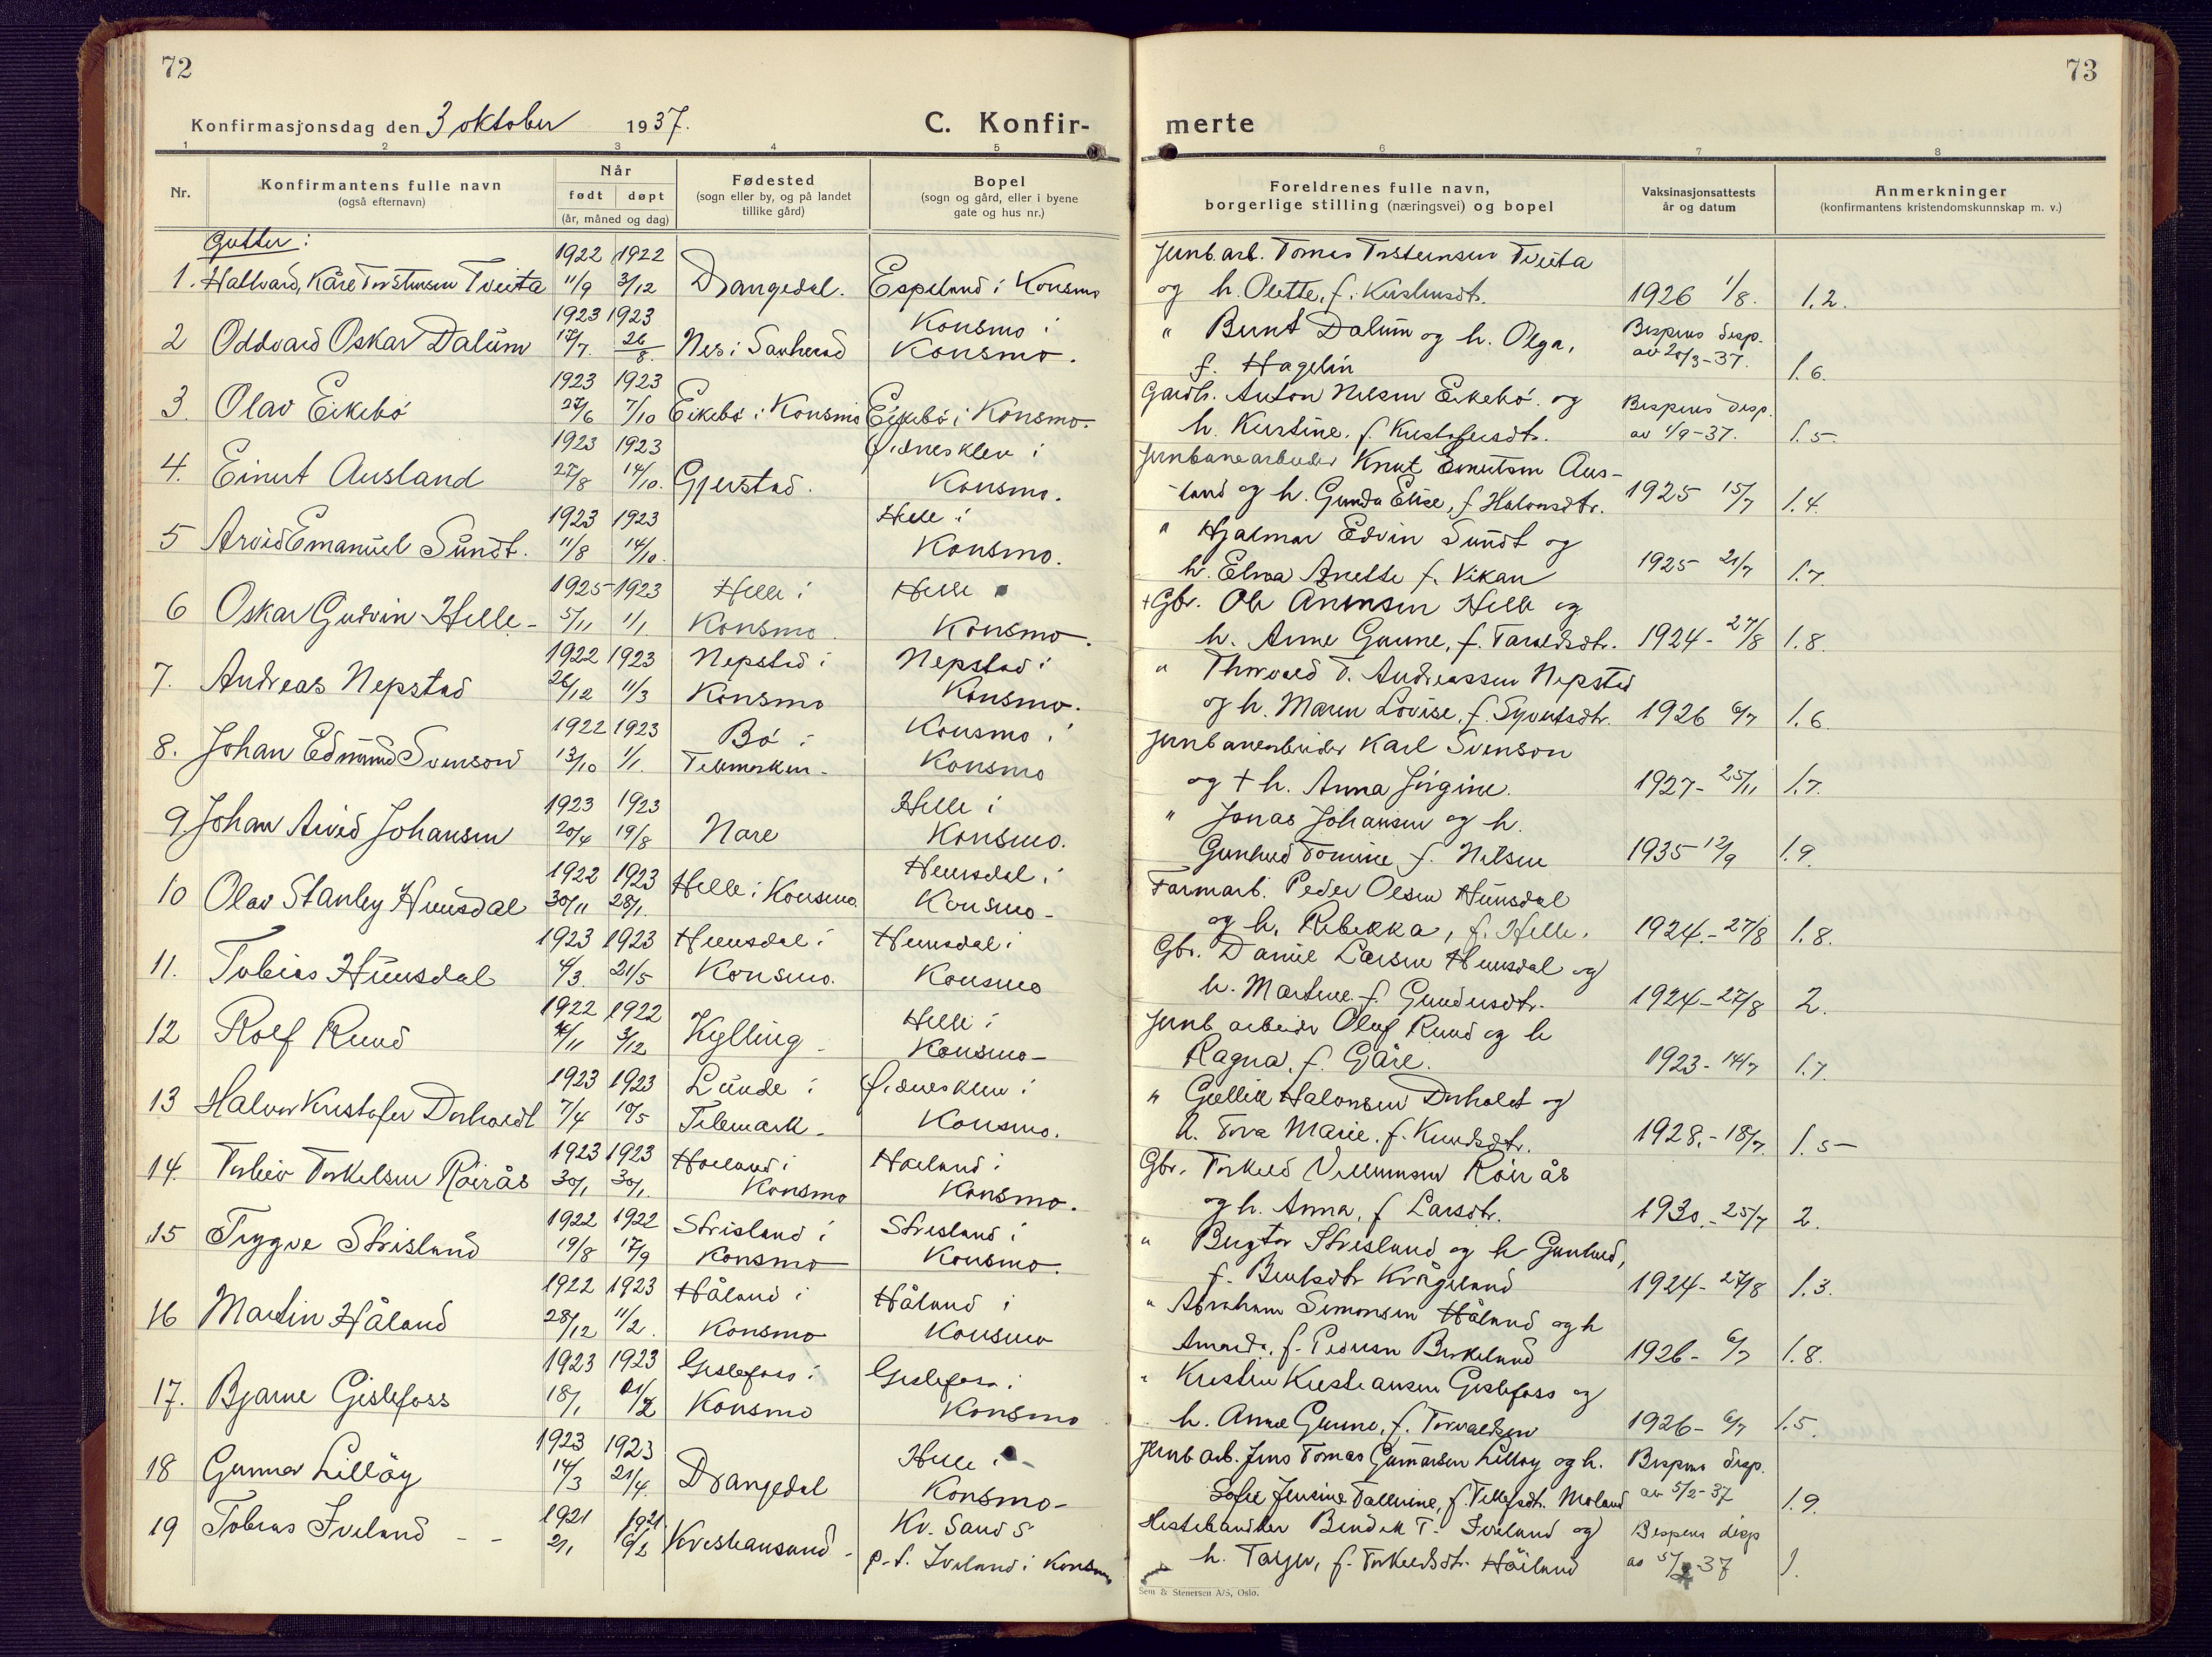 72
73
Konfirmasjonsdag den 3 oktober 1937.
C. Konfir-
merte
1 2 3 4 5 6 7 8
Nr.
Konfirmantens fulle navn
(også efternavn)
Når
født døpt
(år, måned og dag)
Fødested
(sogn eller by, og på landet
tillike gård)
Bopel
(sogn og gård, eller i byene
gate og hus nr.)
Foreldrenes fulle navn,
borgerlige stilling (næringsvei) og bopel
Vaksinasjonsattests
år og datum
Anmerkninger
(konfirmantens kristendomskunnskap m. v.)
Gutter:
1922 1922 Jernb.arb. Tomas Torsteinsen Tveita
1. Hallvard, Kåre Torsteinsen Tveita 11/9 3/12 Drangedal. Espeland i Konsmo og h. Olette, f. 1926 1/8. 1.2.
1923 1923 Konsmo i " Bernt Dalum og h. Olga, Bispens desp.
2 Oddvard Oskar Dalum 17/7. 26/8. Nes i Sauherad Konsmo. f. Hagelin av 20/3-37. 1.6.
1923 1923 Gardbr. Anton Nilsen Eikebø og Bispens desp.
3. Olav Eikebø 27/6 7/10 Eikebø i Konsmo Eikebø i Konsmo. h. Kirstine, f. Kristofersdtr. av 1/9-37. 1.5.
1923 1923 Øidnesklev i Jernbanearbeider Knut Einertsen Aus-
4. Einert Ausland 27/8 14/10. Gjerstad. Konsmo. land og h. Gunda Elise, f. Halvorsdtr. 1925 15/7 1.4.
1923 1923 Helle i " Hjalmar Edvin Sundt og
5 Arvid Emanuel Sundt. 11/8 14/10. Konsmo. h. Elna Anette f. Vikan 1925 21/7 1.7.
1925 1923 Helle i Helle +Gbr. Ole Anensen Helle og
6 Oskar Gudvin Helle 5/11 1/1 Konsmo. Konsmo. h. Anne Gurine, f. Taraldsdtr. 1924- 27/8 1.8.
1922 1923 Nepstad i Nepstad i " Thorvald T. Andreassen Nepstad
7. Andreas Nepstad 26/12 11/3 Konsmo Konsmo. og h. Maren Lovise, f. Syvertsdtr. 1926 6/7 1.6.
1922 1923 Bø i Konsmo i Jernbanearbeider Karl Svenson
8. Johan Edmund Svenson 13/10 1/1. Telemarken- Konsmo og + h. Anna Jørgine. 1927- 25/11 1.7.
1923 1923 Helle i " Jonas Johansen og h.
9. Johan Arvid Johansen 20/4 19/8 Nare Konsmo. Gunhild Tomine f. Nilsen 1935 12/9 1.9.
1922 1923 Helle i Konsmo. Heunsdal i Farmarb. Peder Olsen Hunsdal
10 Olav Stanley Hunsdal 30/11 28/1. Konsmo- og h. Rebekka, f. Helle. 1924.-27/8 1.8.
1923 1923 Hunsdal i Hunsdal i Gbr. Daniel Larsen Hunsdal og
11. Tobias Hunsdal 4/3. 21/5 Konsmo. Konsmo h. Martine f. Gundersdtr. 1924-27/8 2.
1922 1922 Helle i Jernb.arbeider Oluf Ruud og h
12 Rolf Ruud 4/11 3/12 Kylling Konsmo- Ragna, f. Gåre. 1923-14/7 1.7.
1923 1923 Lunde i Øidnesklev i " Gellik Halvorsen Dorholdt og
13 Halvor Kristofer Dorholdt 7/4 10/5 Telemark- Konsmo. h. Tora Marie. f. Knudsdtr. 1928.-18/7. 1.5
1923 1923 Høeland i Høeland i Gbr. Torkeld Villumsen Røirås
14. Torleiv Torkelsen Røirås 30/1 30/1. Konsmo Konsmo. og h. Anna, f. Larsdtr. 1930.-25/7 2.
1922 1922 Strisland i Strisland i " Bergtor Strisland og h Gunhild,
15 Trygve Strisland 19/8 17/9 Konsmo Konsmo. f. Bentsdtr Krågeland 1924-27/8 1.3.
1922 1923 Håland i Håland i " Abraham Simonsen Håland og h
16 Martin Håland 28/12 11/2. Konsmo Konsmo Amanda, f. Pedersen Birkeland 1926- 6/7 1.8.
1923 1923 Gislefoss i Gislefoss i " Kristen Kristiansen Gislefoss og
17. Bjarne Gislefoss 18/1 21/2 Konsmo Konsmo h. Anne Gurine, f. Torvaldsen 1926- 6/7 1.5.
1923 1923 Helle i Jernb.arb. Jens Tomas Gunnarsen Lilløy og h. Bispens desp.
18 Gunnar Lilløy 14/3 21/4. Drangedal Konsmo- Sofie Jensine Talline, f. Tellefsdtr. Moland av 5/2-37 1.9.
1921 1921 Kr. Sand S Hestehandler Bendik T. Iveland og Bispens desp
19 Tobias Iveland 2/1 16/2 Kristiansand p.t. Iveland i Konsmo h. Tarjer, f. Torkeldsdtr. Håiland av 5/2-37 1.
Sem & Stenersen A/S, Oslo.